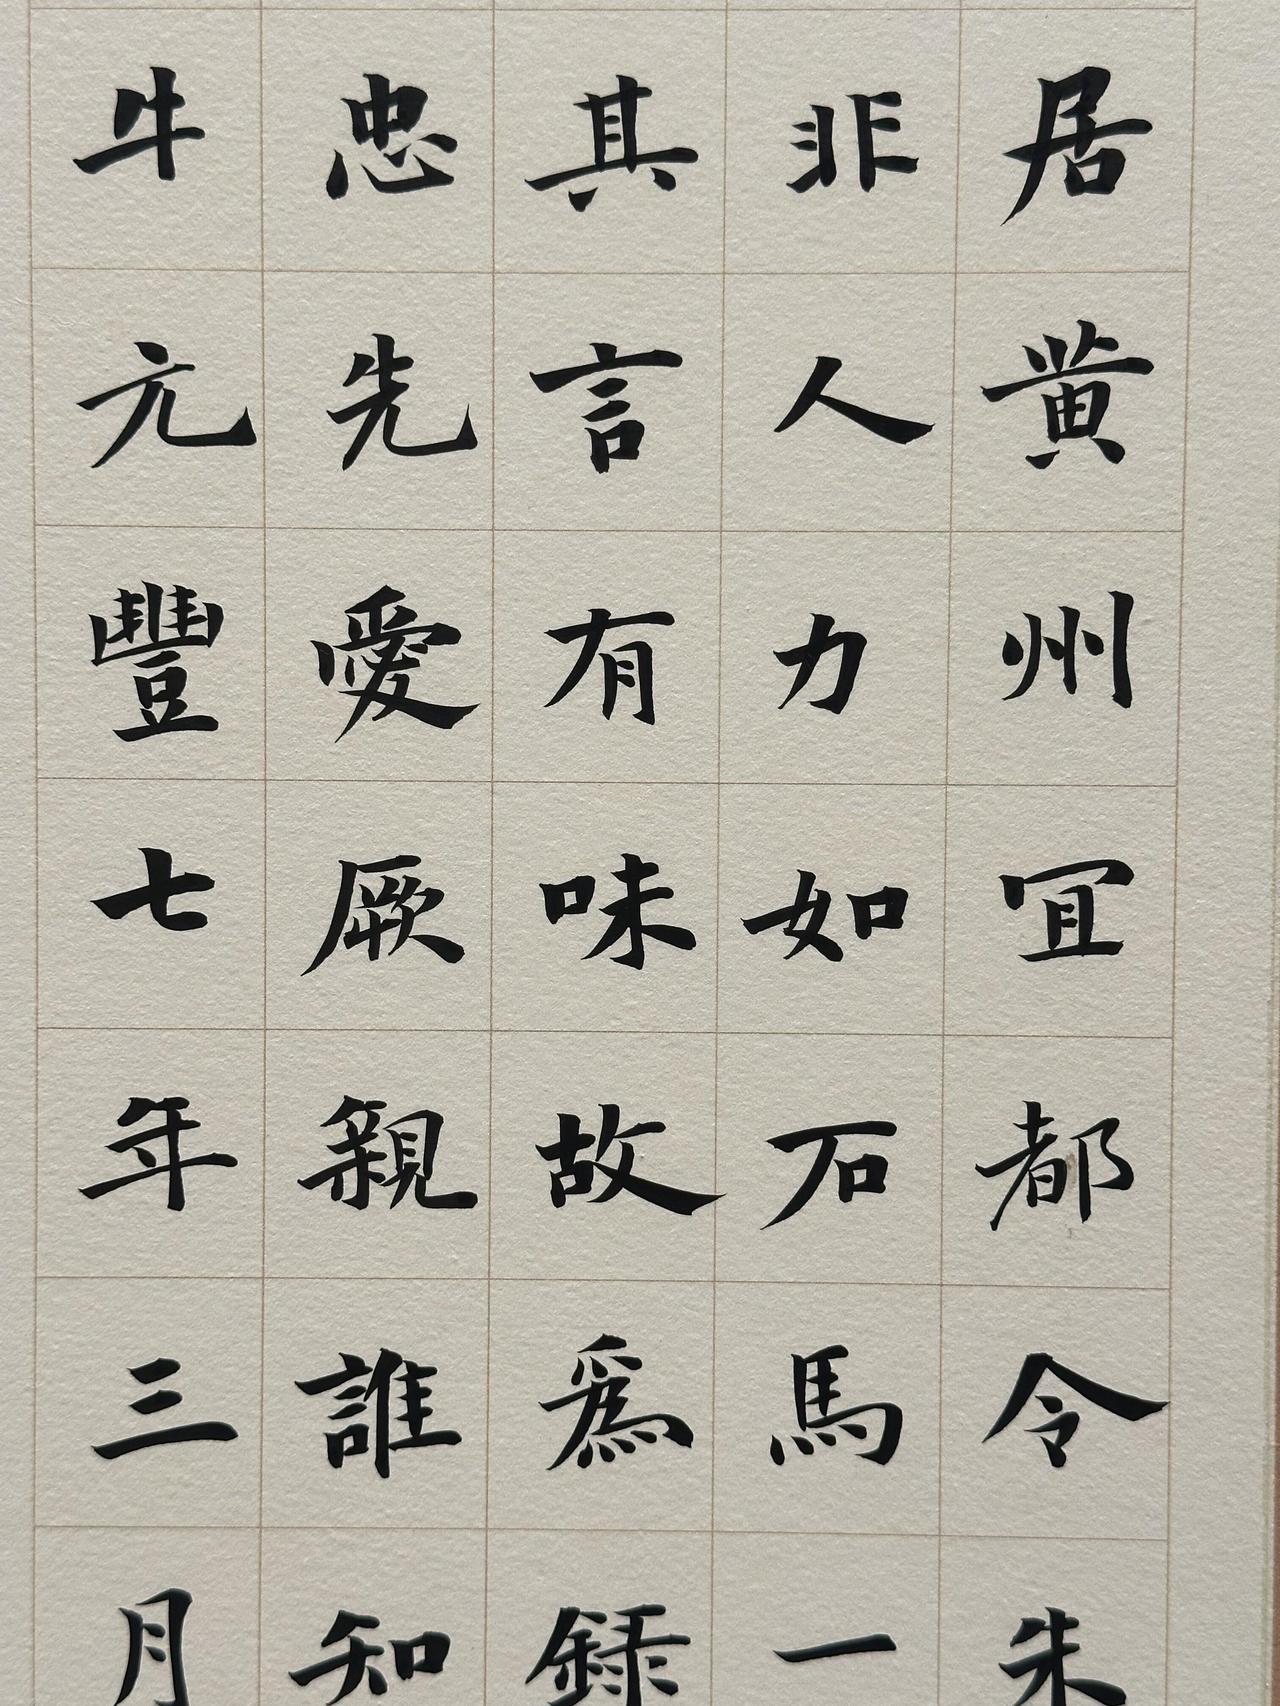 居黃州冝都令朱
非人力如石馬一
其言有味故爲録
忠先愛厥親誰知
牛元豐七年三月